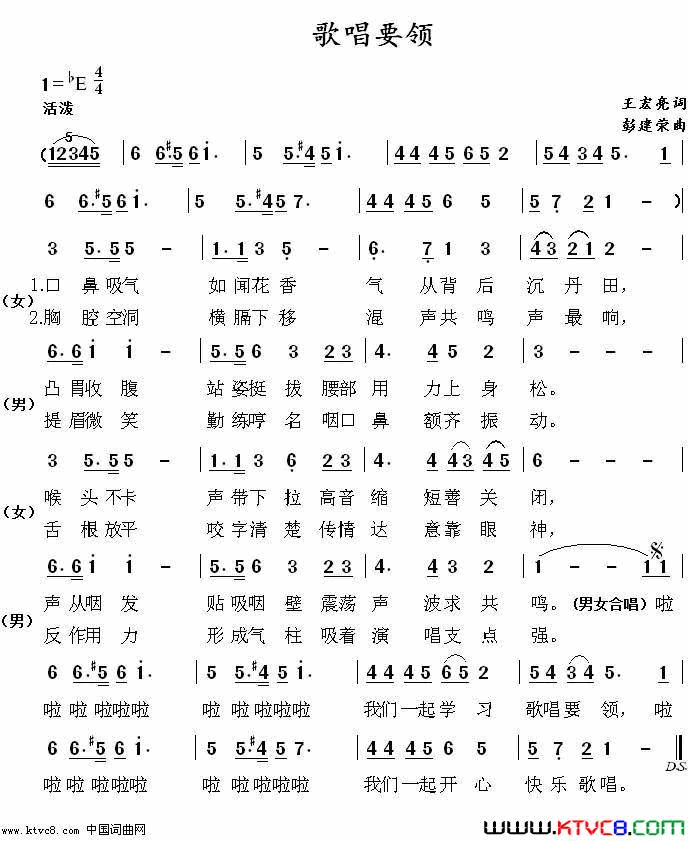 歌唱要领
1=♭E 4/4
活泼
王宏亮词
彭建荣曲
5
(12345 | 6 6.#5 6 1. | 5 5.#4 5 1. | 4 4 4 5 6 5 2 | 5 4 3 4 5. 1 |
6 6.#5 6 1. | 5 5.#4 5 7. | 4 4 4 5 6 5 | 5 7 2 1 - ) |
3 5.5 5 - | 1.1 3 5 - | 6. 7 1 2 | 4 3 2 1 - |
(女) 1.口 鼻吸气 如闻花香 气 从背后 沉丹田,
2.胸 腔空洞 横膈下移 混 声共鸣 声最响,
6.6 1 1 - | 5.5 6 3 2 3 | 4. 4 5 2 | 3 - - - |
(男) 凸胃收腹 站姿挺拔腰部用 力上身 松。
提眉微笑 勤练哼名咽口鼻 额齐振 动。
3 5.5 5 - | 1.1 3 6 2 3 | 4. 4 4 3 4 5 | 6 - - - |
(女) 喉头不卡 声带下拉高音缩 短善关 闭,
舌根放平 咬字清楚传情达 意靠眼 神,
6.6 1 1 - | 5.5 6 3 2 3 | 4. 4 5 2 | 1 - - 1 1 |
(男) 声从咽发 贴吸咽壁震荡声 波求共 鸣。(男女合唱) 啦
反作用力 形成气柱吸着演 唱支点 强。
6 6.#5 6 1. | 5 5.#4 5 1. | 4 4 4 5 6 5 2 | 5 4 3 4 5. 1 |
啦 啦 啦啦啦 啦 啦 啦啦啦 我们一起学习 歌唱要领, 啦
6 6.#5 6 1. | 5 5.#4 5 7. | 4 4 4 5 6 5 | 5 7 2 1 - ‖
D.S.
啦 啦 啦啦啦 啦 啦 啦啦啦 我们一起开心 快乐歌唱。
www.ktvc8.com 中国词曲网
WWW.KTVC8.COM